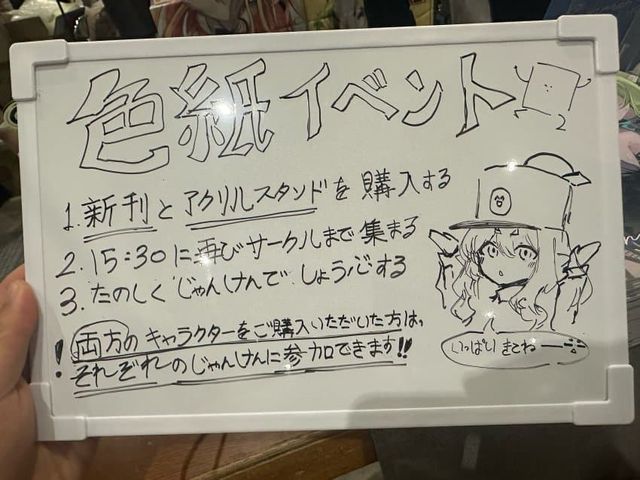 色紙イベント
1. 新刊とアクリルスタンドを購入する
2. 15:30に再びサークルまで集まる
3. たのしくじゃんけんでしょうぶする
! 両方のキャラクターをご購入いただいた方は、
それぞれのじゃんけんに参加できます!!
いっぱい きてね